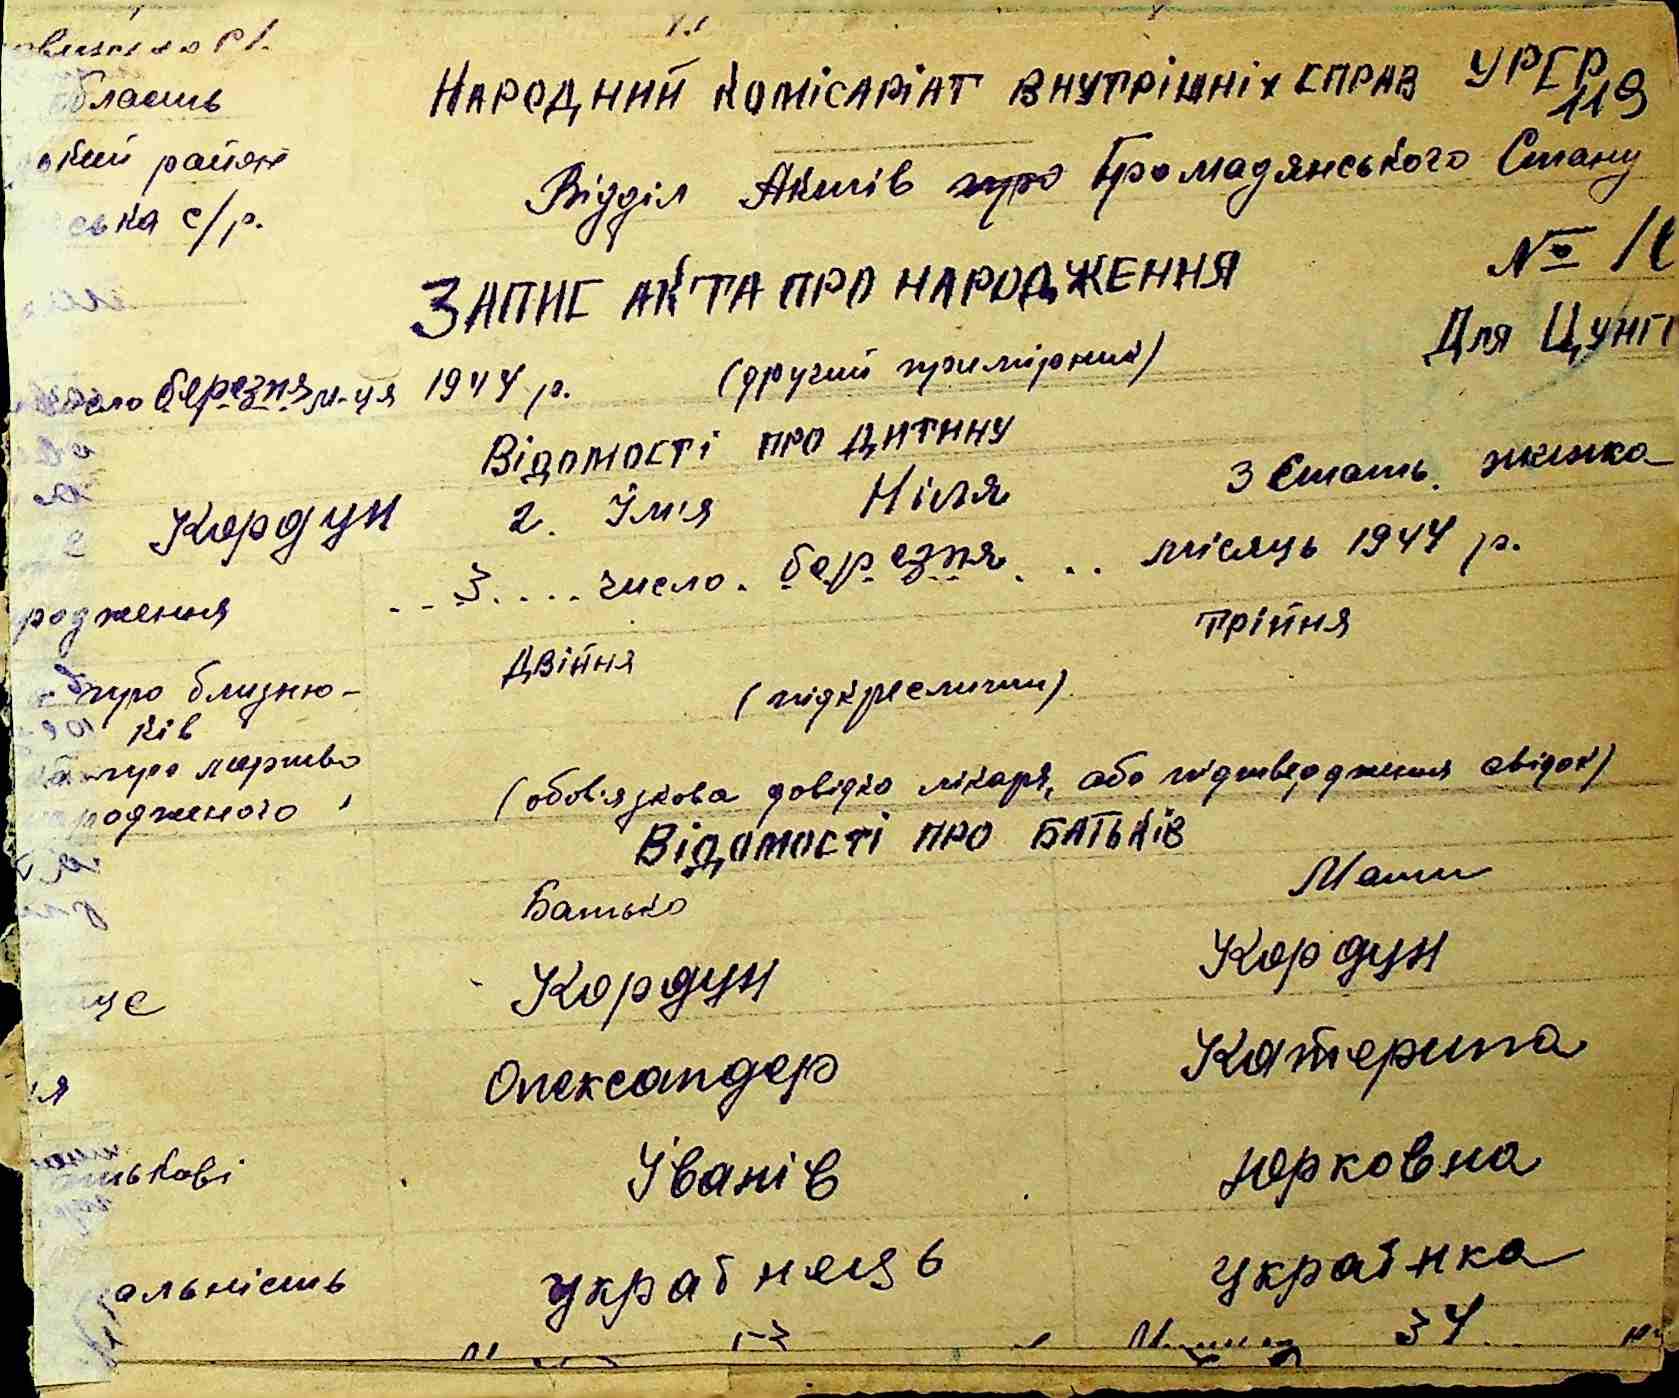 область
Народний Комісаріат Внутрішніх справ УРСР
119
район
Відділ Актів про Громадянського Стану
ська с/р.
Запис акта про народження
№
Для
березня м-ця 1944 р. (другий примірник)
Відомості про дитину
Кордун 2. Ім'я Ніля 3 Стать. жінка
3 число. березня місяць 1944 р.
родження
двійня трійня
про близню-
ків
(підкреслити)
про мертво
родженого
(обов'язкова довідка лікаря, або підтвердження свідок)
Відомості про батьків
Батько Мати
ще Кордун Кордун
я Олександер Катерина
ькові Іванів Юрковна
альність українець українка
34